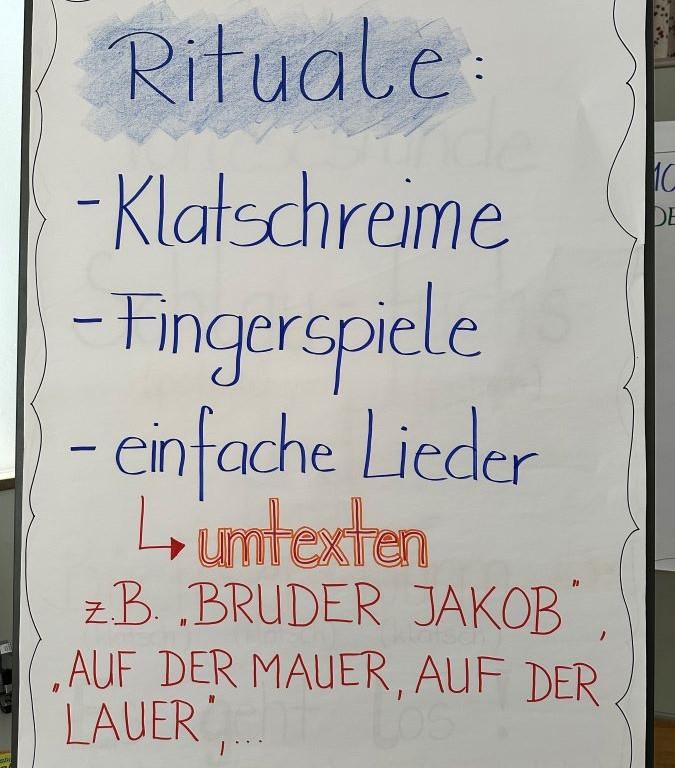 Rituale:
- Klatschreime
- Fingerspiele
- einfache Lieder
↳ umtexten
z.B. „BRUDER JAKOB",
„AUF DER MAUER, AUF DER
LAUER",...